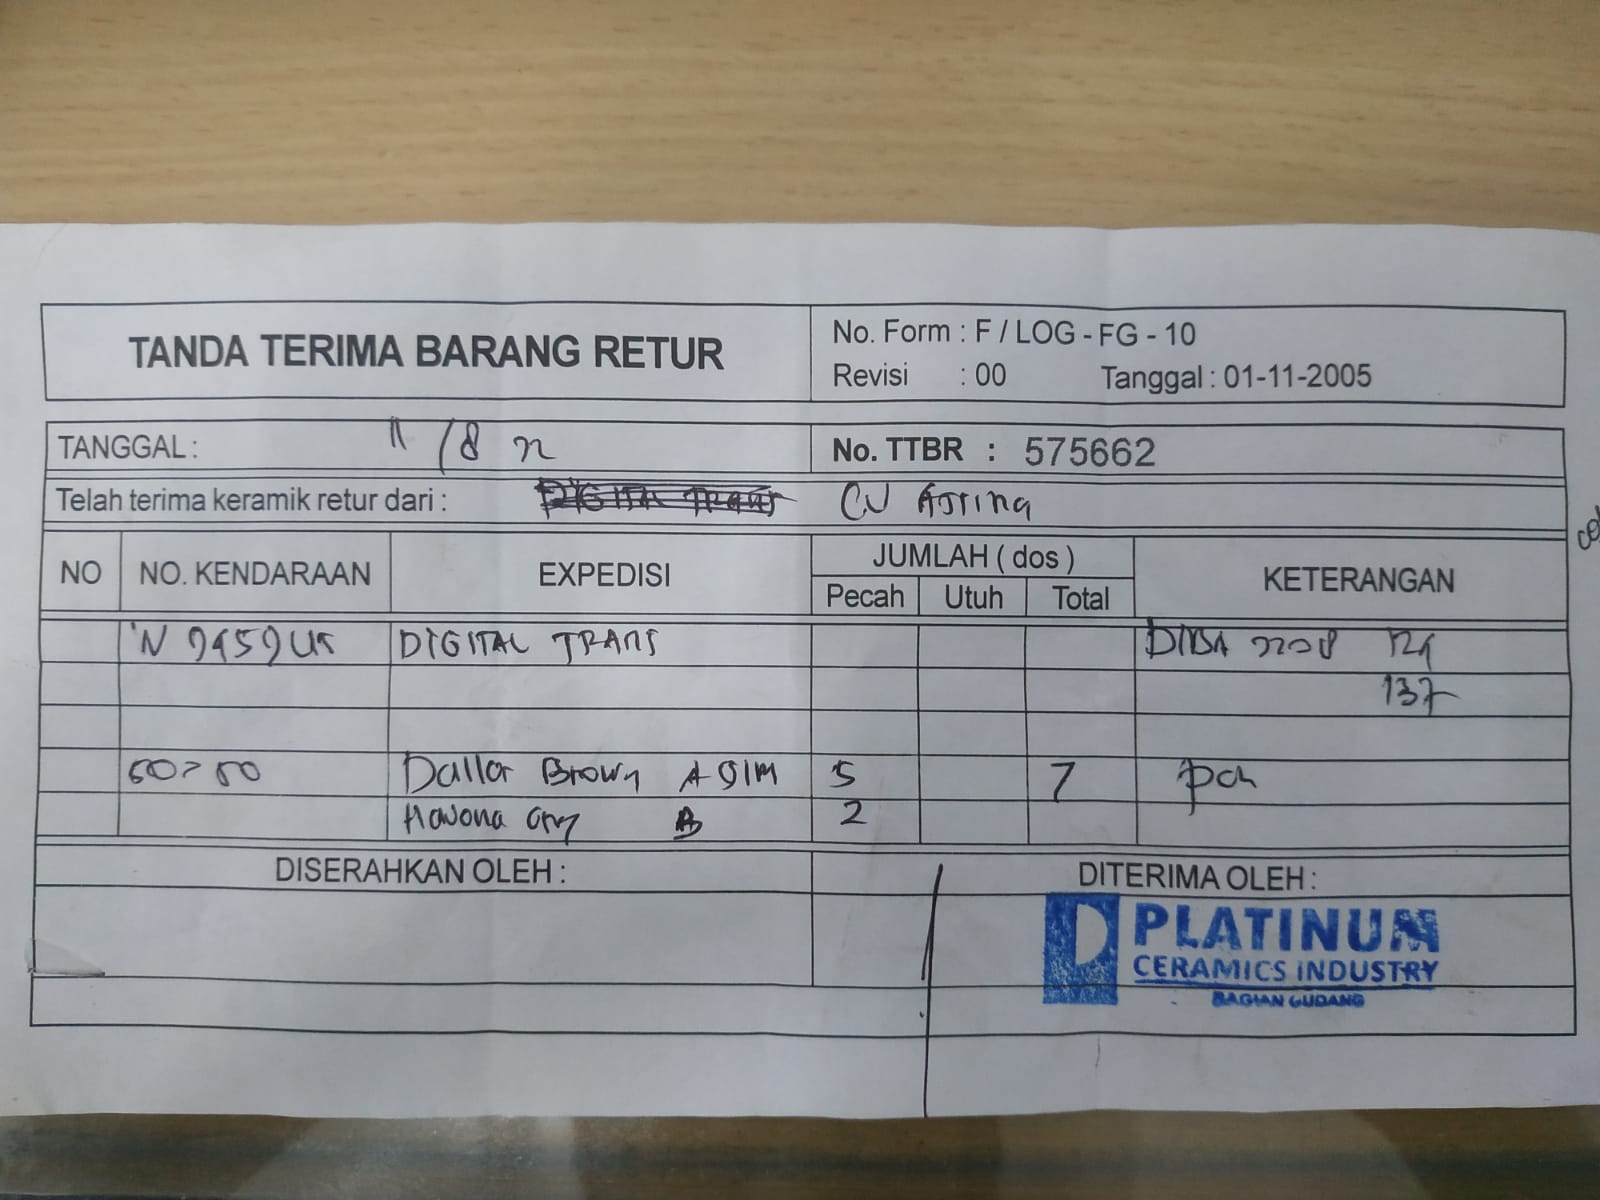 TANDA TERIMA BARANG RETUR
No. Form : F / LOG - FG - 10
Revisi : 00 Tanggal : 01-11-2005
TANGGAL : 11/8 22
No. TTBR : 575662
Telah terima keramik retur dari : DIGITAL TRANS CV
NO NO. KENDARAAN EXPEDISI JUMLAH ( dos ) KETERANGAN
Pecah Utuh Total
DIGITAL TRANS 2208
137
Dallar Brown A 5 7 pch
Havana B 2
DISERAHKAN OLEH : DITERIMA OLEH :
PLATINUM
CERAMICS INDUSTRY
BAGIAN GUDANG